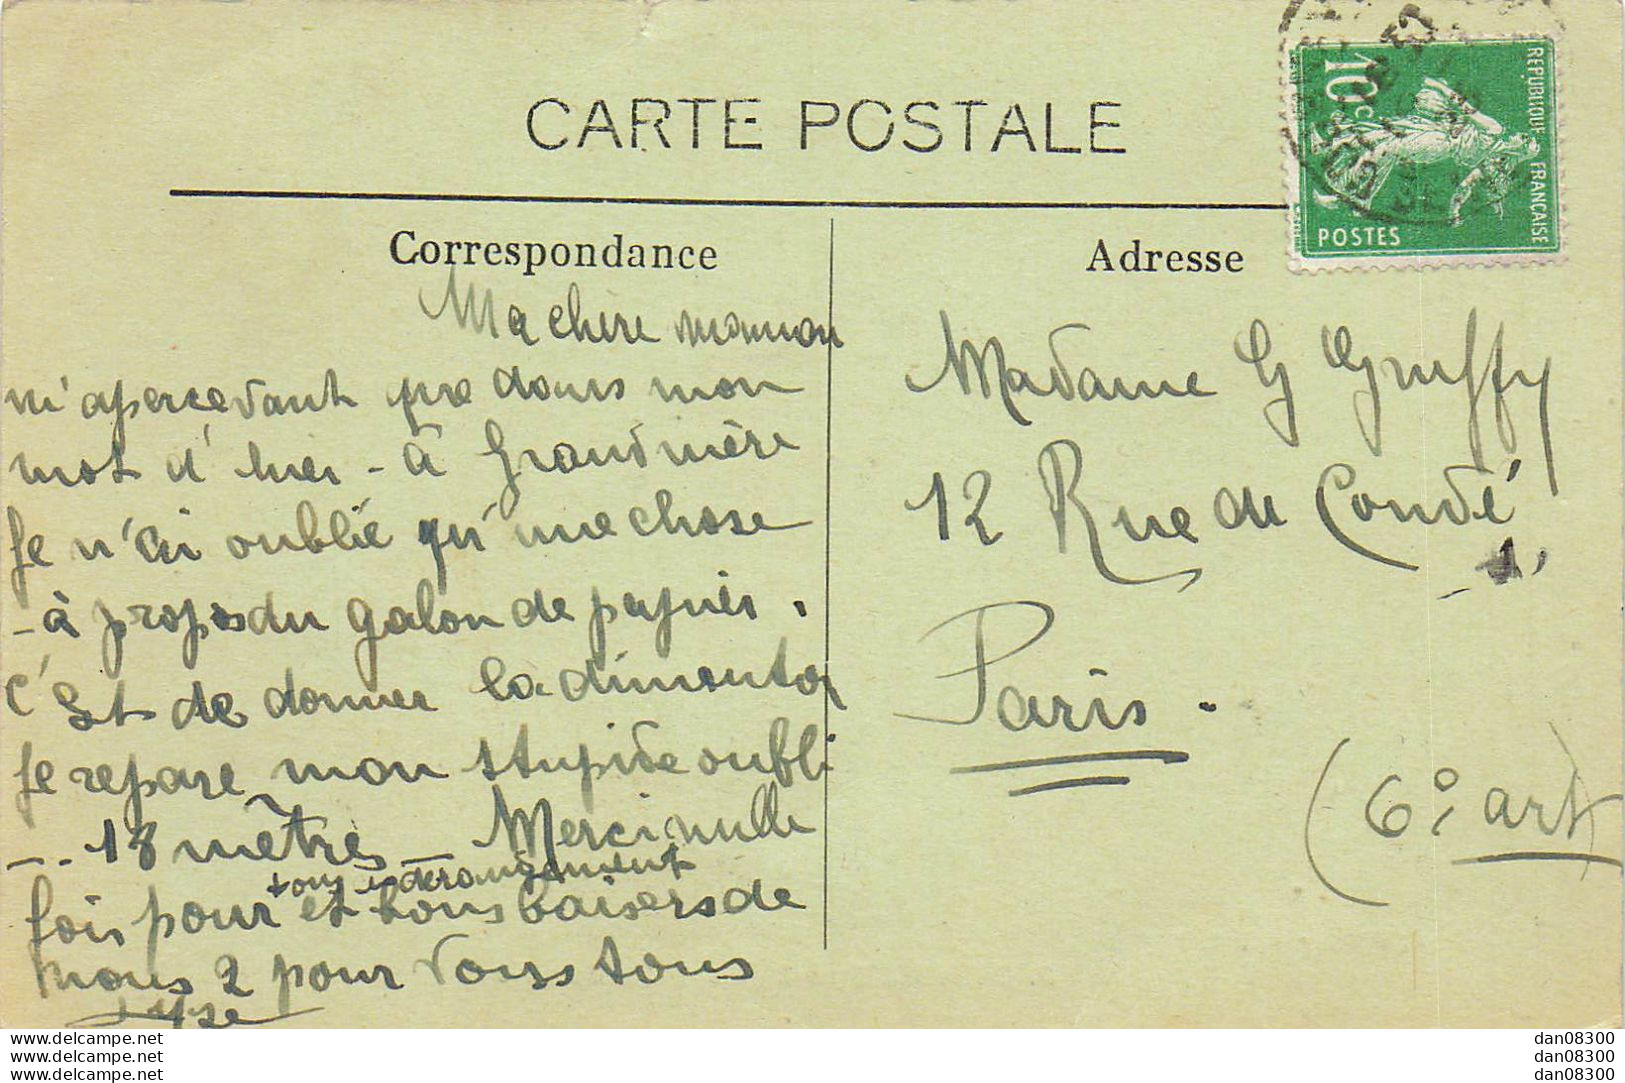 CARTE POSTALE
Correspondance
Ma chère maman
m'apercevant que dans mon
mot d'hier - à Grandmère
Je n'ai oublié qu'une chose
- à propos du galon de
c'est de donner la dimention
Je repare mon stupide oubli
-.. 18 mètres - Merci mille
fois pour ton dérangement
et bons baisers de
nous 2 pour vous tous
Adresse
Madame G Gruffy
12 Rue de Condé
Paris.
(6e art
10c
REPUBLIQUE FRANCAISE
POSTES
www.delcampe.net
www.delcampe.net
www.delcampe.net
dan08300
dan08300
dan08300